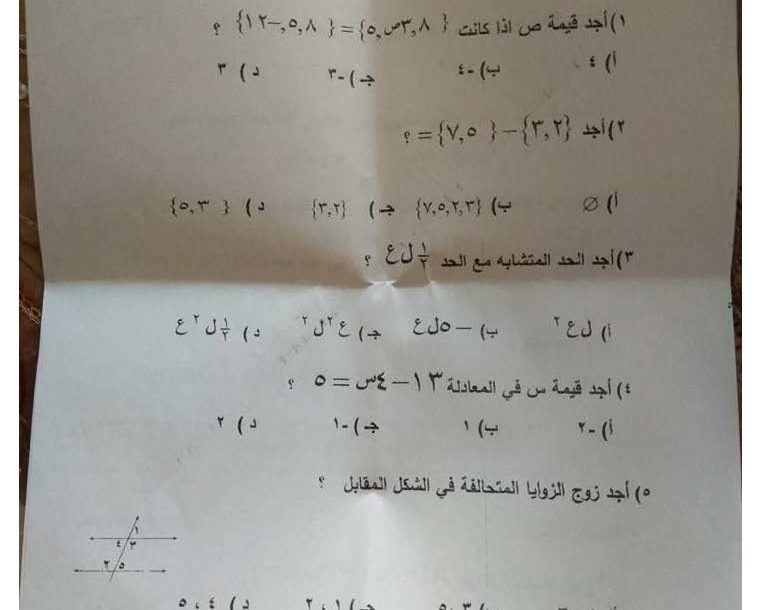 ١) أجد قيمة ص اذا كانت { ٣,٨ص,٥} = { ٥,٨,-١٢} ؟
أ) ٤ ب) -٤ جـ) -٣ د) ٣
٢) أجد {٣,٢} – { ٧,٥} = ؟
أ) ∅ ب) {٧,٥,٢,٣} جـ) {٣,٢} د) { ٥,٣}
٣) أجد الحد المتشابه مع الحد ١/٢ ل ع ؟
أ) ل ع٢ ب) –٥ ل ع جـ) ع٢ ل٢ د) ١/٢ ل٢ ع
٤) أجد قيمة س في المعادلة ١٣ – ٤س = ٥ ؟
أ) -٢ ب) ١ جـ) -١ د) ٢
٥) أجد زوج الزوايا المتحالفة في الشكل المقابل ؟
١
٤ ٣
٢ ٥
ب) ٣ ، ٥ جـ) ١ ، ٢ د) ٤ ، ٥